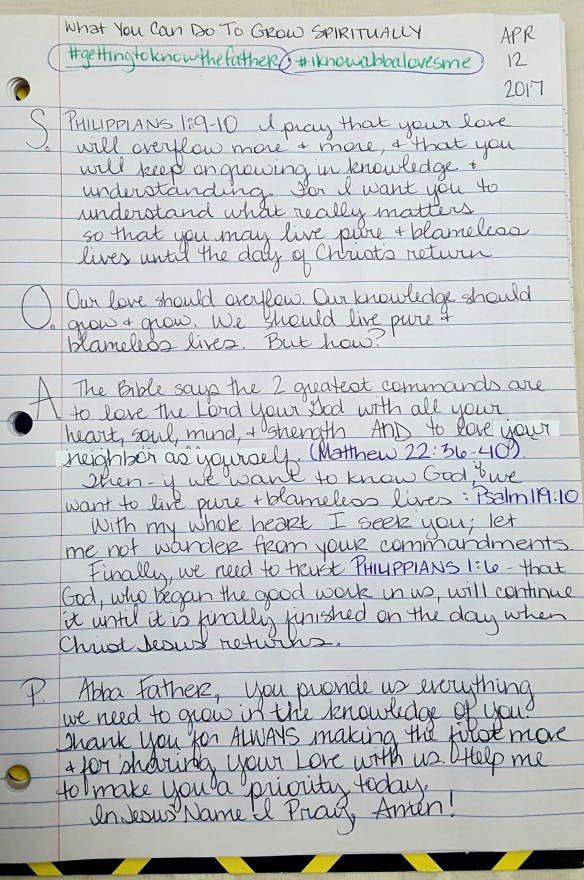 What You Can Do To Grow SPIRITUALLY
#gettingtoknowthefather #iknowabbalovesme
APR
12
2017
S. PHILIPPIANS 1:9-10 I pray that your love
will overflow more + more, + that you
will keep on growing in knowledge +
understanding. For I want you to
understand what really matters
so that you may live pure + blameless
lives until the day of Christ's return
O. Our love should overflow. Our knowledge should
grow + grow. We should live pure +
blameless lives. But how?
A The Bible says the 2 greatest commands are
to love the Lord your God with all your
heart, soul, mind, + strength AND to love your
neighbor as yourself. (Matthew 22:36-40).
Then - if we want to know God, & we
want to live pure + blameless lives: Psalm 119:10
With my whole heart I seek you; let
me not wander from your commandments.
Finally, we need to trust PHILIPPIANS 1:6 - that
God, who began the good work in us, will continue
it until it is finally finished on the day when
Christ Jesus returns.
P. Abba Father, You provide us everything
we need to grow in the knowledge of you.
Thank you for ALWAYS making the first move
+ for sharing your Love with us. Help me
to make you a priority today.
In Jesus' Name I Pray, Amen!